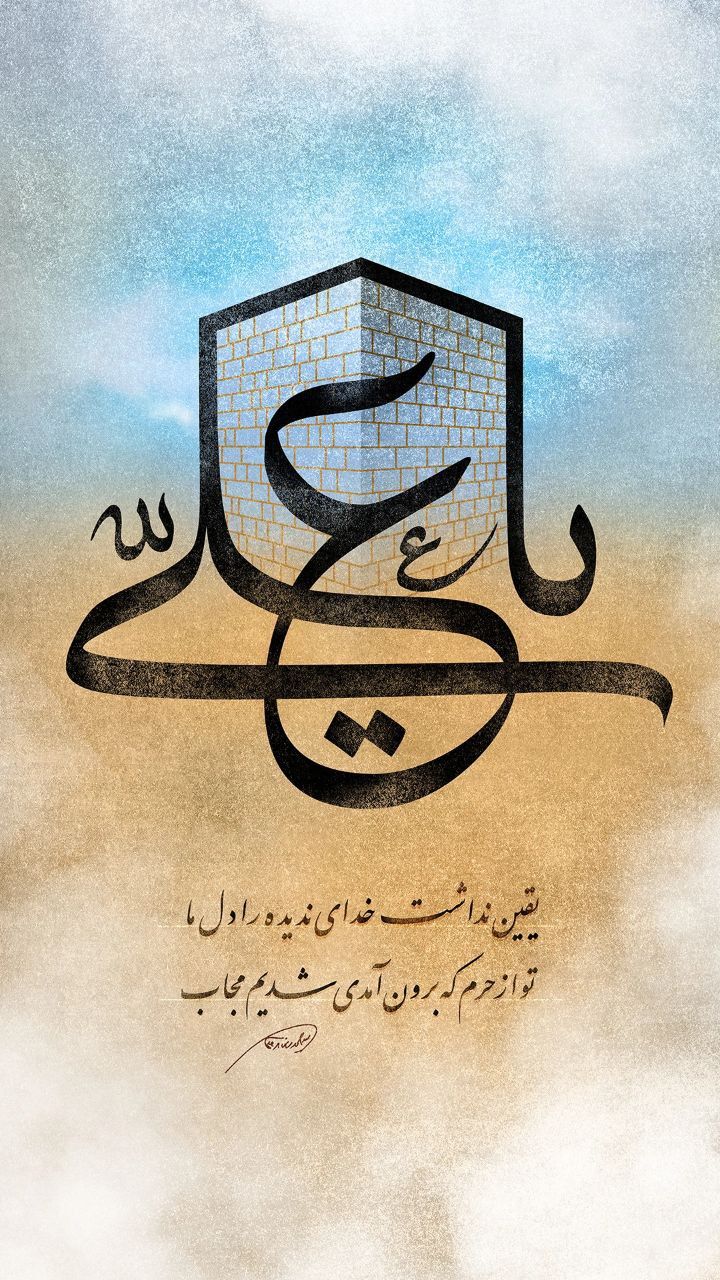 یا علی
یقین نداشت خدای ندیده را دل ما
تو از حرم که برون آمدی شدیم مجاب